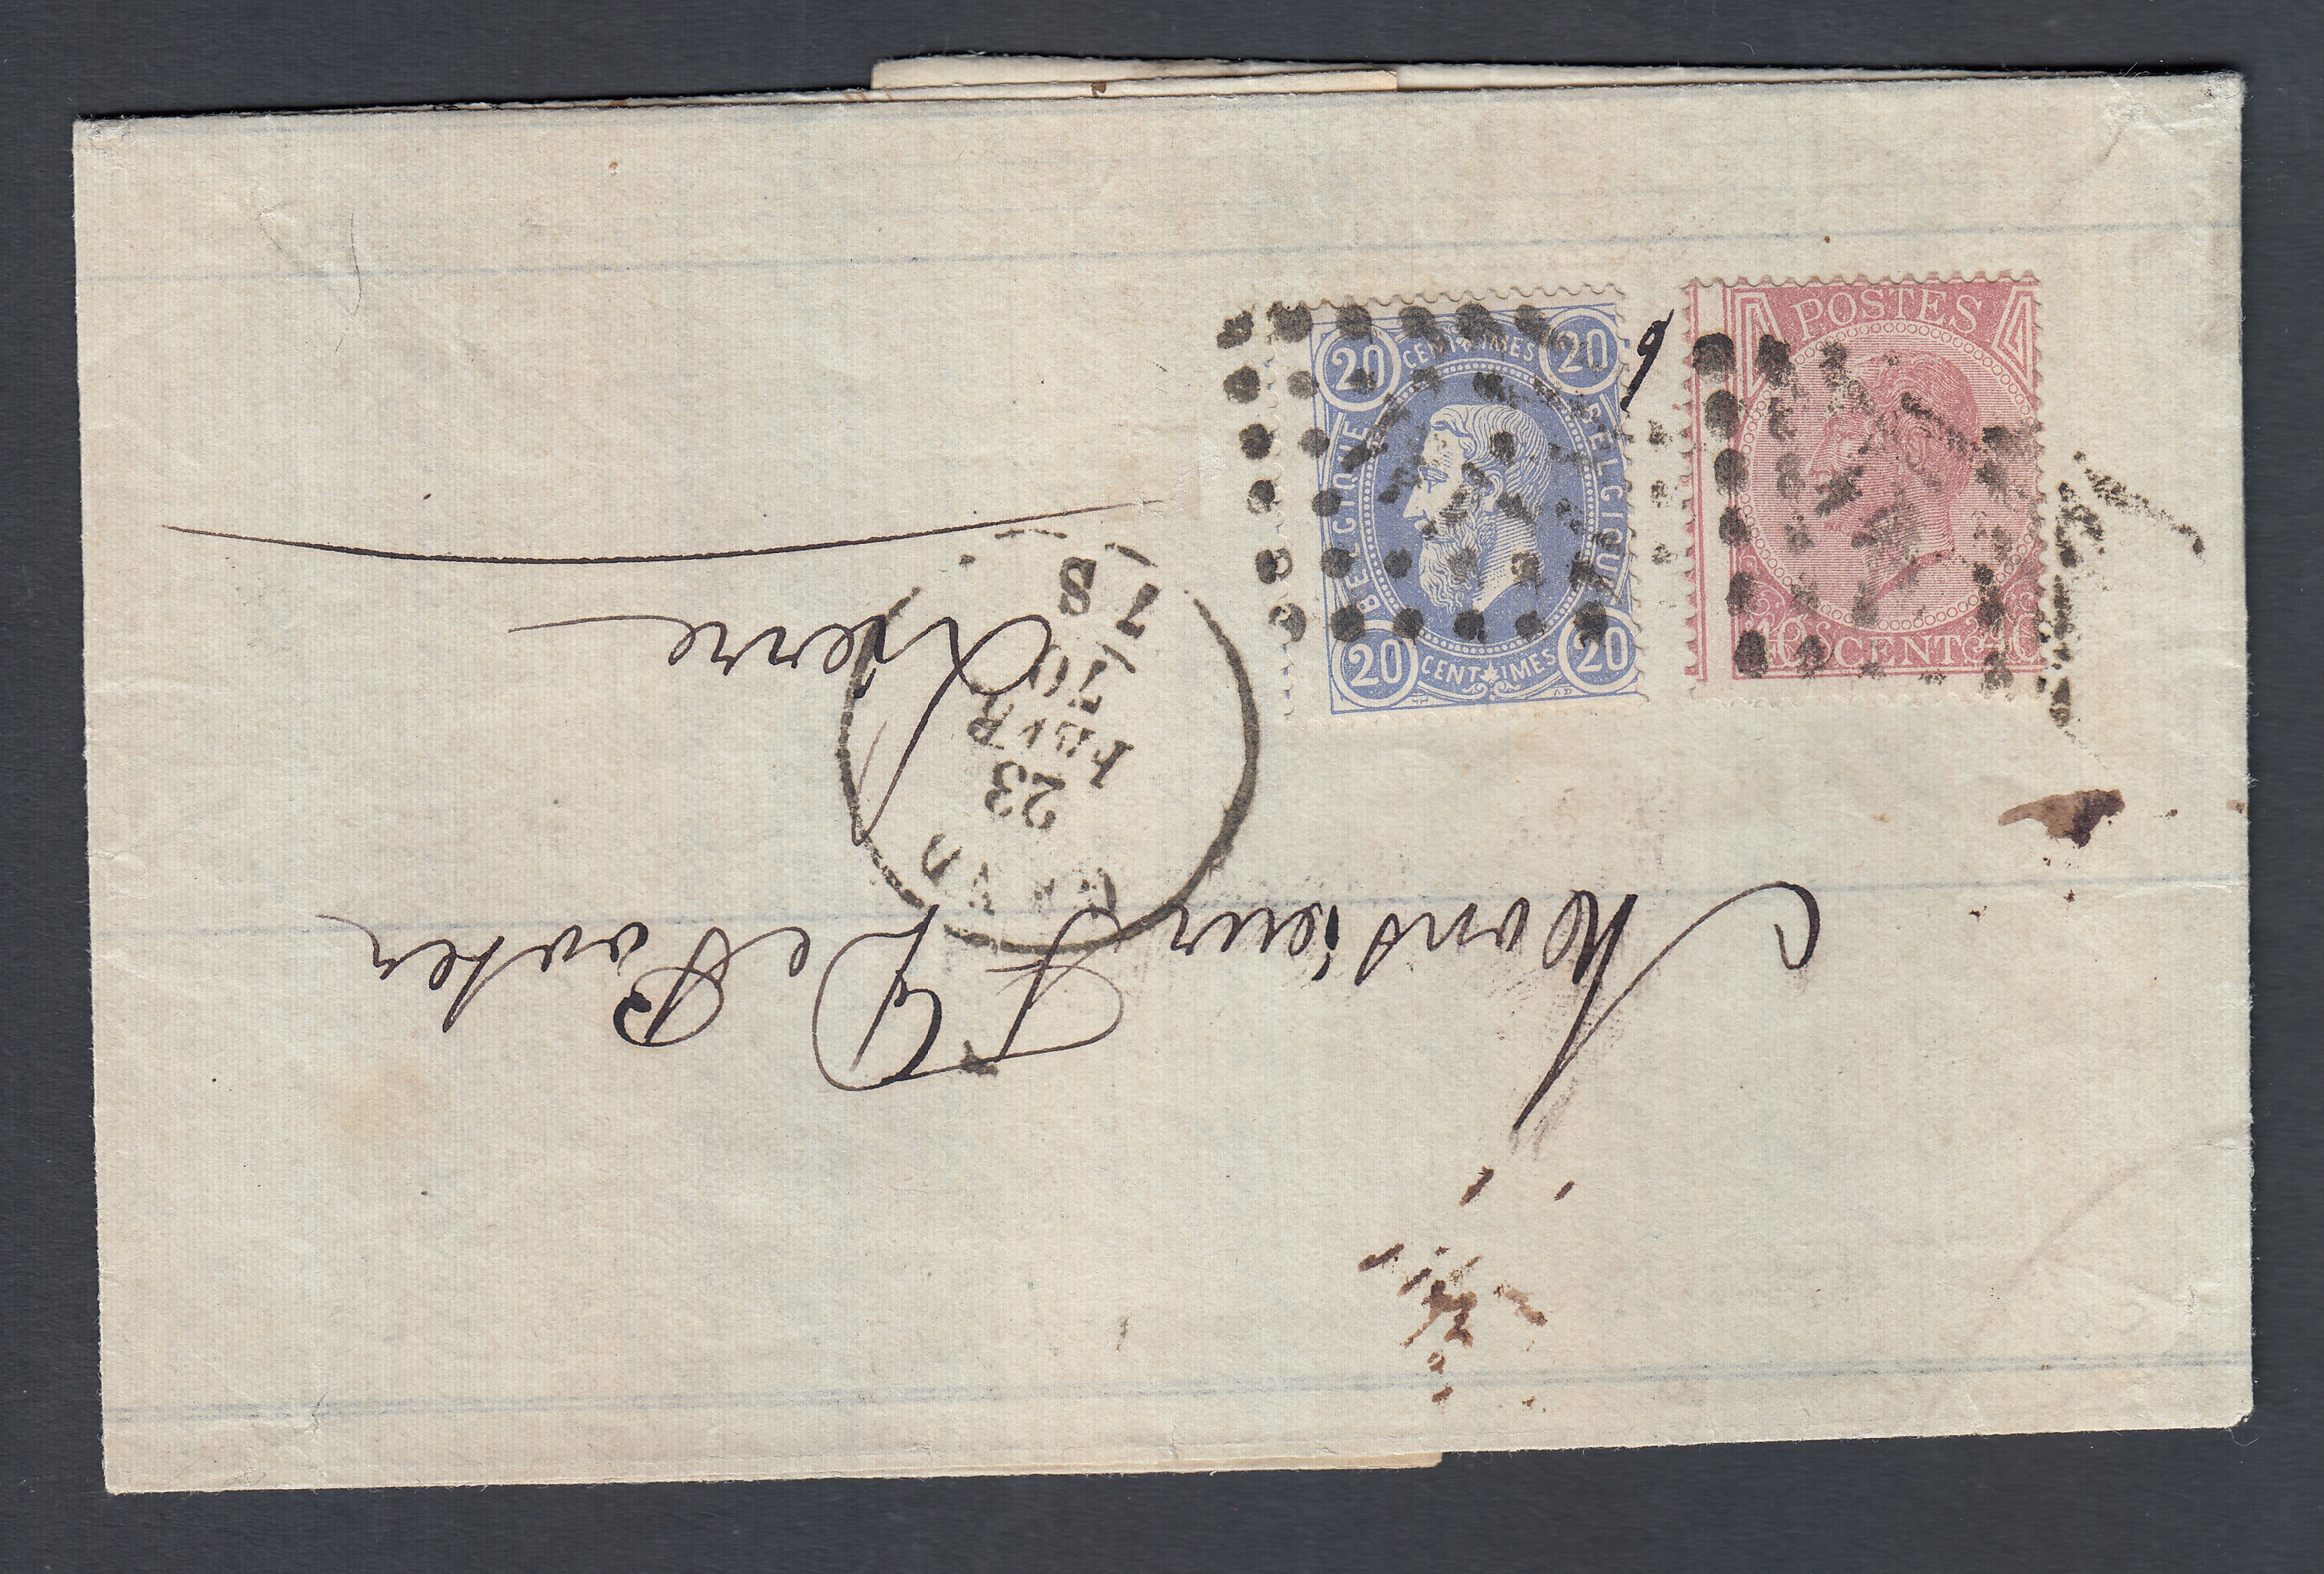 POSTES
40 CENT. 40
20 CENTIMES 20
BELGIQUE BELGIQUE
20 CENTIMES 20
Monsieur F. De Poster
GAND
23
FEVR
70
7 S